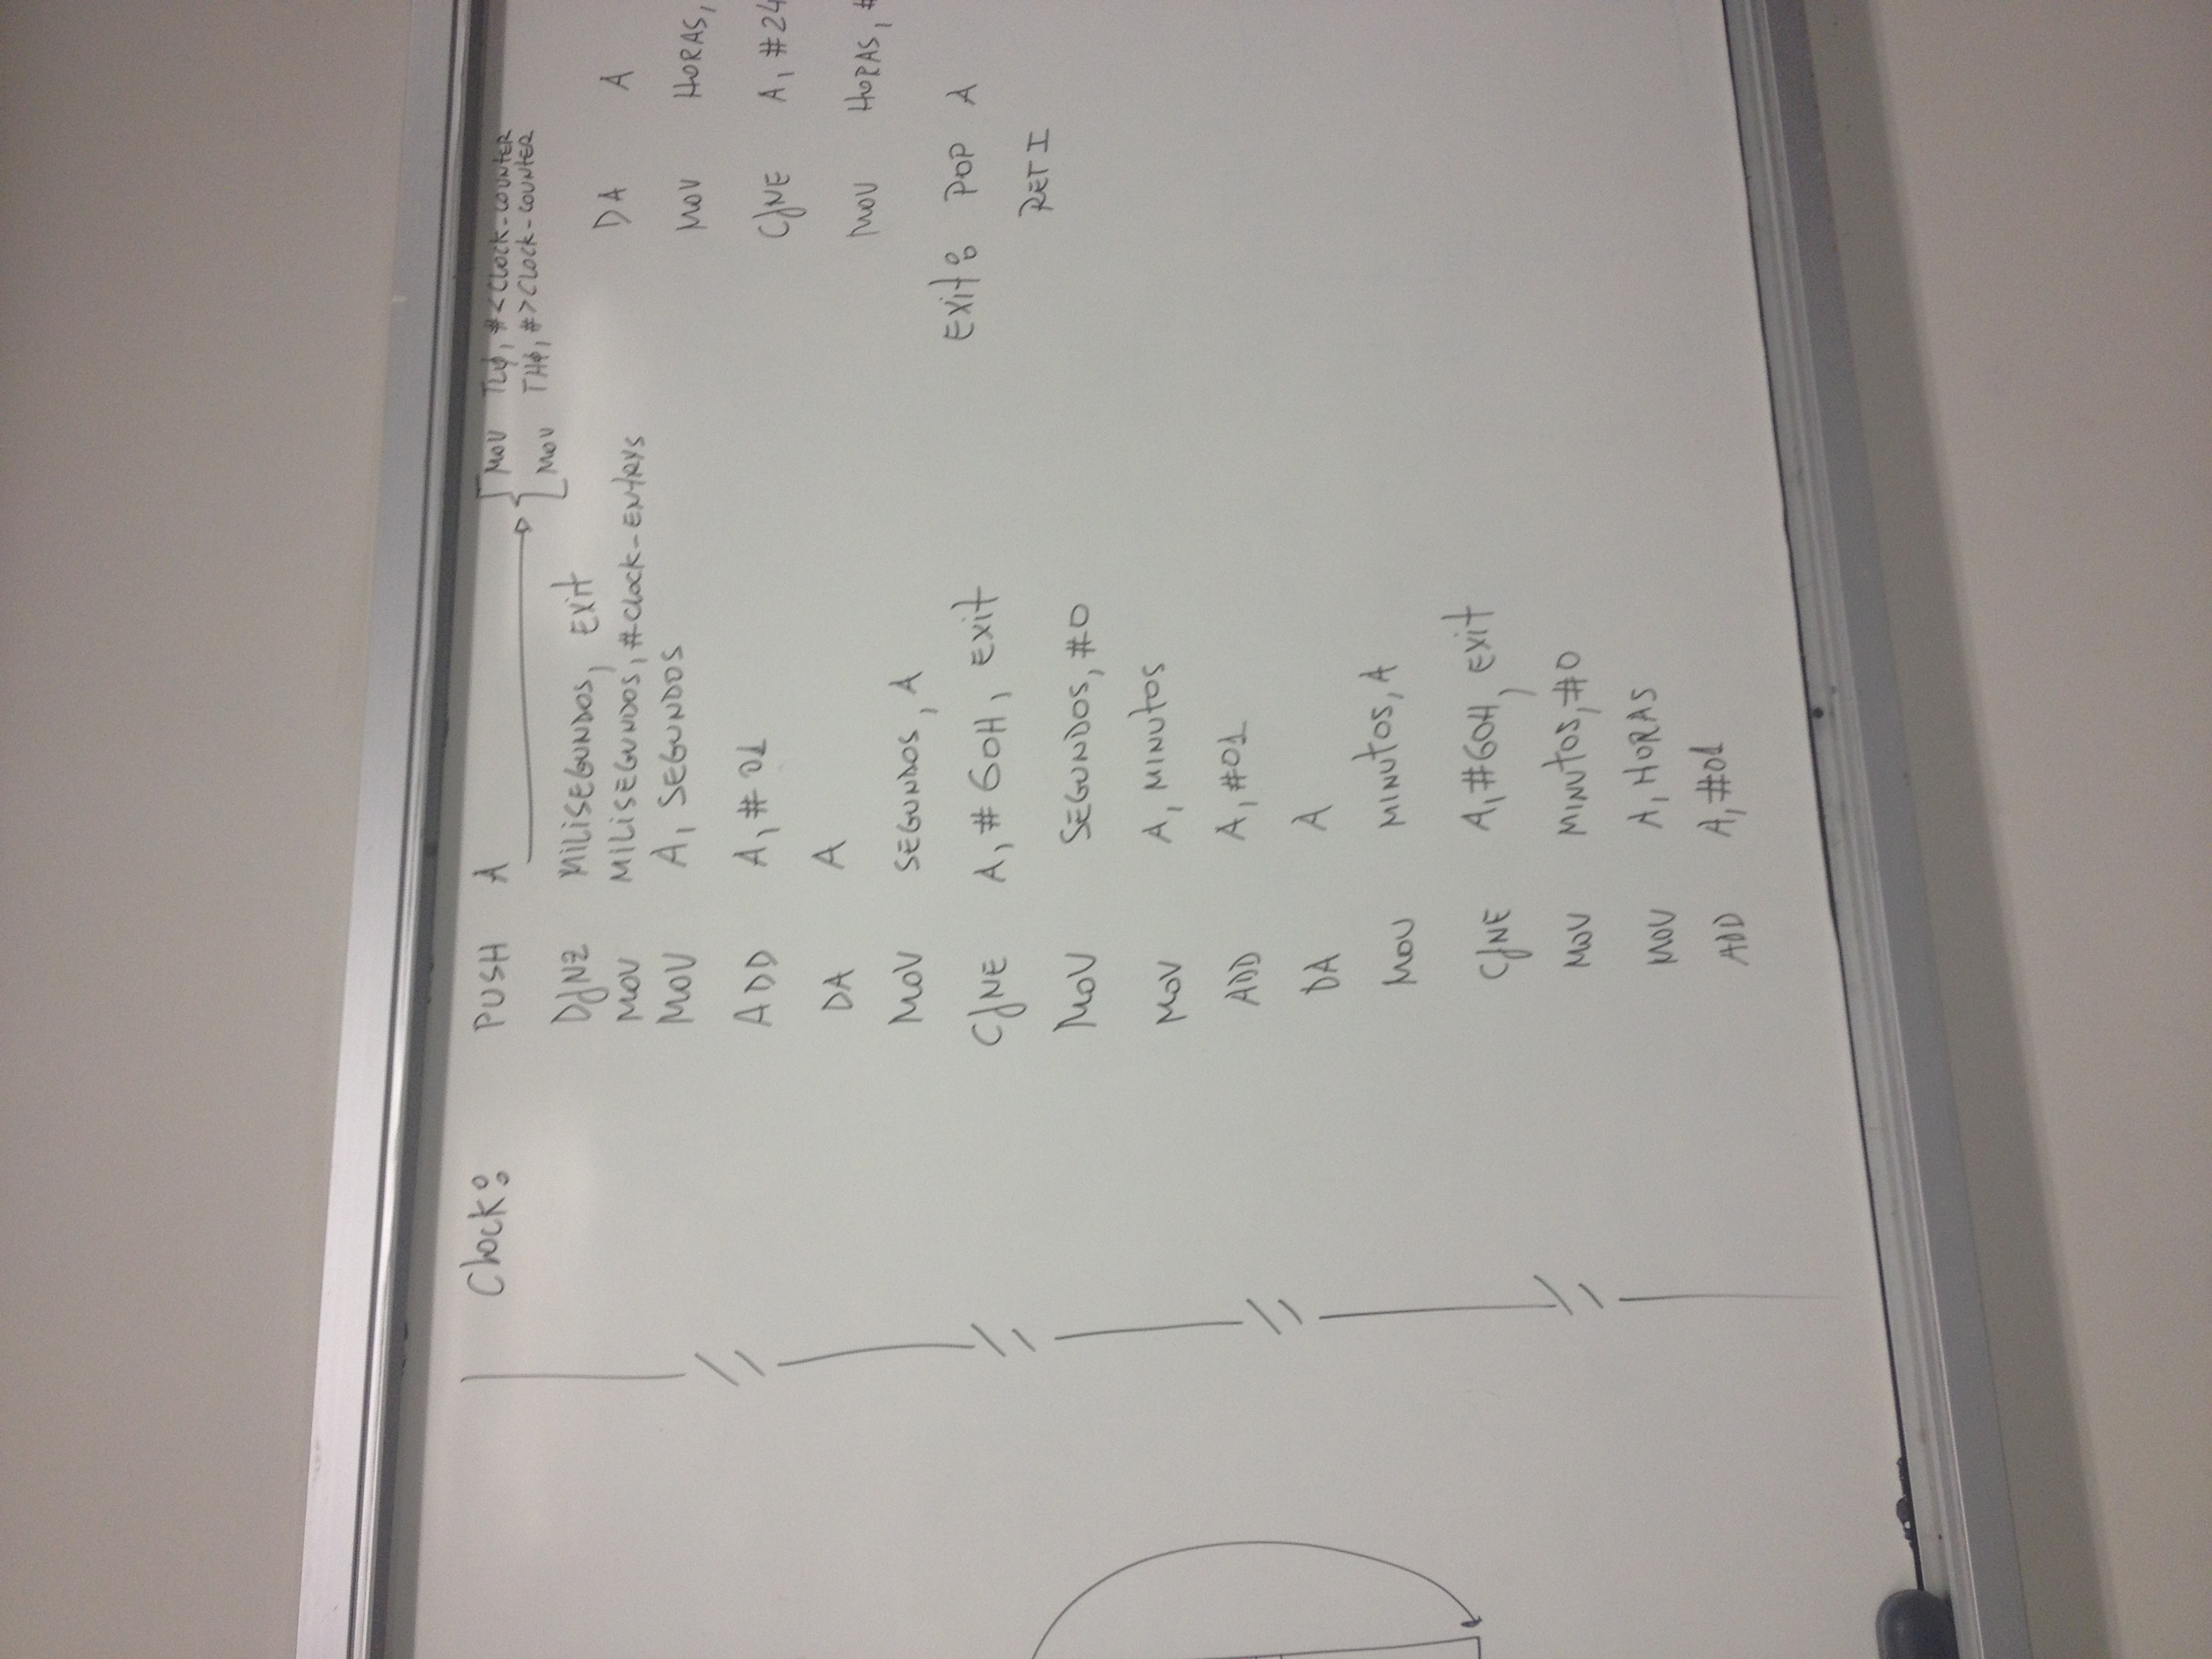 Clock: PUSH A
MOV TLØ, #<CLOCK-COUNTER
MOV THØ, #>CLOCK-COUNTER
DJNZ MILISEGUNDOS, EXIT
MOV MILISEGUNDOS, #CLOCK-ENTRYS
MOV A, SEGUNDOS
ADD A, #01
DA A
MOV SEGUNDOS, A
CJNE A, #60H, EXIT
MOV SEGUNDOS, #0
MOV A, MINUTOS
ADD A, #01
DA A
MOV MINUTOS, A
CJNE A, #60H, EXIT
MOV MINUTOS, #0
MOV A, HORAS
ADD A, #01
DA A
MOV HORAS,
CJNE A, #24
MOV HORAS, #
EXIT: POP A
RETI